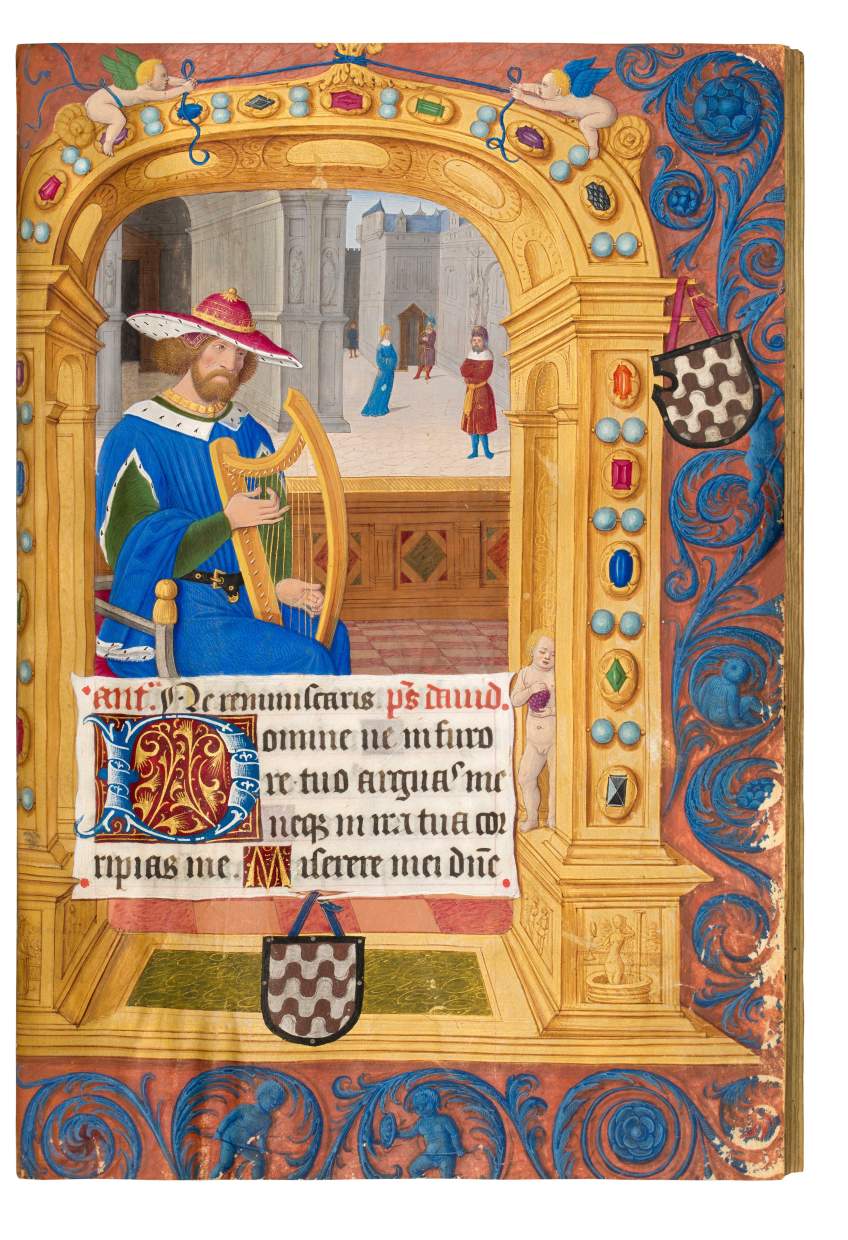 ant᷒. Ne reminiscaris. p̄s dauid.
Domine ne in furo
re tuo arguas me
neqꝫ in ira tua cor
ripias me. Miserere mei dn̄e